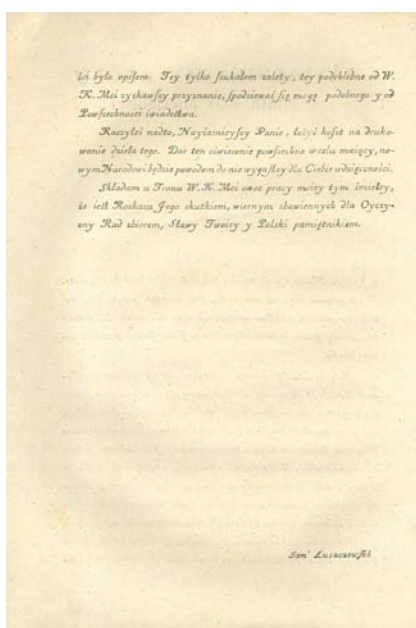 ści było opisem. Tey tylko szukałem zalety, tey podchlebne od W.
K. Mci zyskawszy przyznanie, spodziewać się mogę podobnego y od
Powszechności świadectwa.
Raczyłeś nadto, Nayiaśnieyszy Panie, łożyć koszt na druko-
wanie dzieła tego. Dar ten oświecenie powszechne w celu maiący, no-
wym Narodowi będzie powodem do nie wygasłey dla Ciebie wdzięczności.
Składam u Tronu W. K. Mci owoc pracy moiey tym śmieley,
że iest Rozkazu Jego skutkiem, wiernym zbawiennych dla Oyczy-
zny Rad zbiorem, Sławy Twoiey y Polski pamiętnikiem.
Jan Łuszczewski